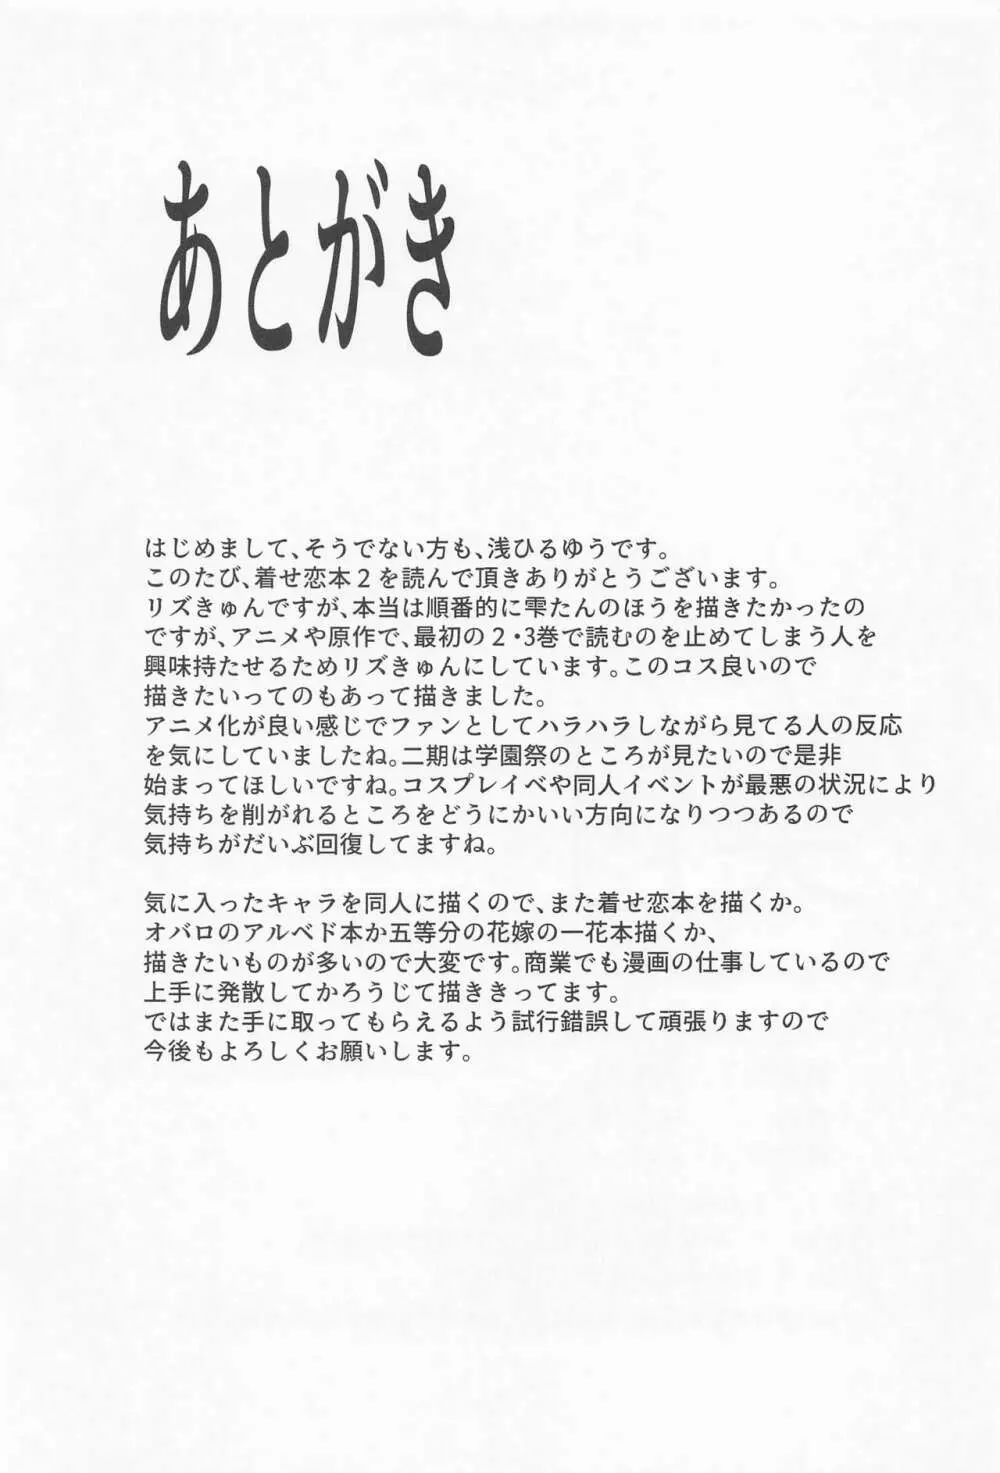 あとがき
はじめまして、そうでない方も、浅ひるゆうです。
このたび、着せ恋本２を読んで頂きありがとうございます。
リズきゅんですが、本当は順番的に雫たんのほうを描きたかったの
ですが、アニメや原作で、最初の２・3巻で読むのを止めてしまう人を
興味持たせるためリズきゅんにしています。このコス良いので
描きたいってのもあって描きました。
アニメ化が良い感じでファンとしてハラハラしながら見てる人の反応
を気にしていましたね。二期は学園祭のところが見たいので是非
始まってほしいですね。コスプレイベや同人イベントが最悪の状況により
気持ちを削がれるところをどうにかいい方向になりつつあるので
気持ちがだいぶ回復してますね。
気に入ったキャラを同人に描くので、また着せ恋本を描くか。
オバロのアルベド本か五等分の花嫁の一花本描くか、
描きたいものが多いので大変です。商業でも漫画の仕事しているので
上手に発散してかろうじて描ききってます。
ではまた手に取ってもらえるよう試行錯誤して頑張りますので
今後もよろしくお願いします。